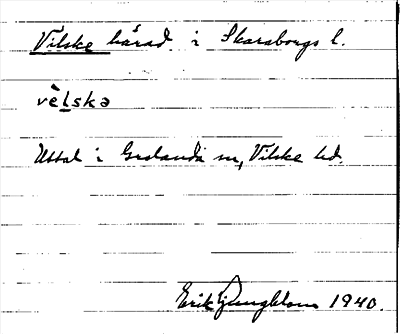 Vilske härad i Skaraborgs l.
vèlskə
Uttal i Grolanda sn, Vilske hd.
Erik Ljungblom 1940.